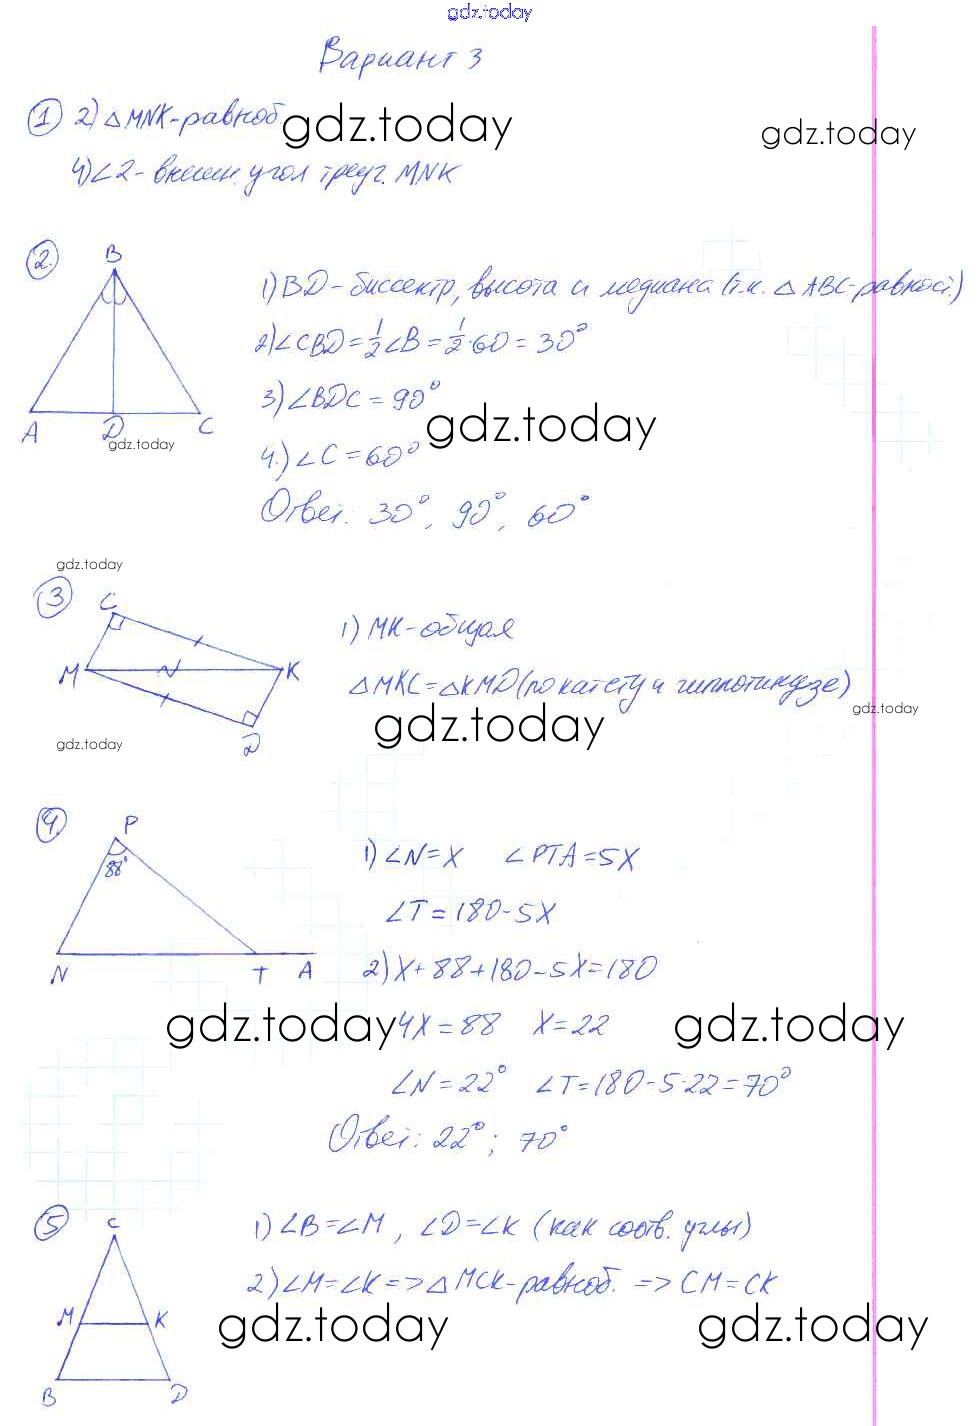 gdz.today
Вариант 3
1 2) △MNK-равноб. gdz.today
gdz.today
4) ∠2 - внешн. угол треуг. MNK
2.
B
A D C
gdz.today
1) BD - биссектр, высота и медиана (т.к. △ ABC-равност.)
2) ∠CBD = 1/2 ∠B = 1/2 · 60 = 30°
3) ∠BDC = 90°
gdz.today
4.) ∠C = 60°
Ответ: 30°, 90°, 60°
gdz.today
3
C
M K
D
1) MK - общая
△MKC = △KMD (по катету и гиппотинузе)
gdz.today
gdz.today
gdz.today
4.
P
88°
N T A
1) ∠N = X ∠PTA = 5X
∠T = 180 - 5X
2) X + 88 + 180 - 5X = 180
gdz.today 4X = 88 X = 22 gdz.today
∠N = 22° ∠T = 180 - 5·22 = 70°
Ответ: 22°; 70°
5
C
M K
B D
1) ∠B = ∠M, ∠D = ∠K (как соотв. углы)
2) ∠M = ∠K => △ MCK-равноб. => CM = CK
gdz.today gdz.today